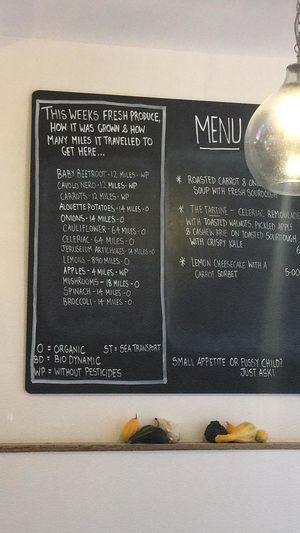 THIS WEEKS FRESH PRODUCE,
HOW IT WAS GROWN & HOW
MANY MILES IT TRAVELLED TO
GET HERE...
BABY BEETROOT - 12 MILES - WP
CAVOLO NERO - 12 MILES - WP
CARROTS - 12 MILES - WP
ALOUETTE POTATOES - 14 MILES - O
ONIONS - 14 MILES - O
CAULIFLOWER - 64 MILES - O
CELERIAC - 64 MILES - O
JERUSELUM ARTICHOKES 14 MILES - O
LEMONS - 890 MILES - O
APPLES - 4 MILES - WP
MUSHROOMS - 18 MILES - O
SPINACH - 14 MILES - O
BROCCOLI - 14 MILES - O
O = ORGANIC ST = SEA TRANSPORT
BD = BIO DYNAMIC
WP = WITHOUT PESTICIDES
MENU
* ROASTED CARROT &
SOUP WITH FRESH SOURDOUGH
* THE TARTINE - CELERIAC REMOULADE
WITH TOASTED WALNUTS, PICKLED APPLE
& CASHEW BRIE ON TOASTED SOURDOUGH
WITH CRISPY KALE 6
* LEMON CHEESECAKE WITH A
CARROT SORBET 5-00
SMALL APPETITE OR FUSSY CHILD?
JUST ASK!